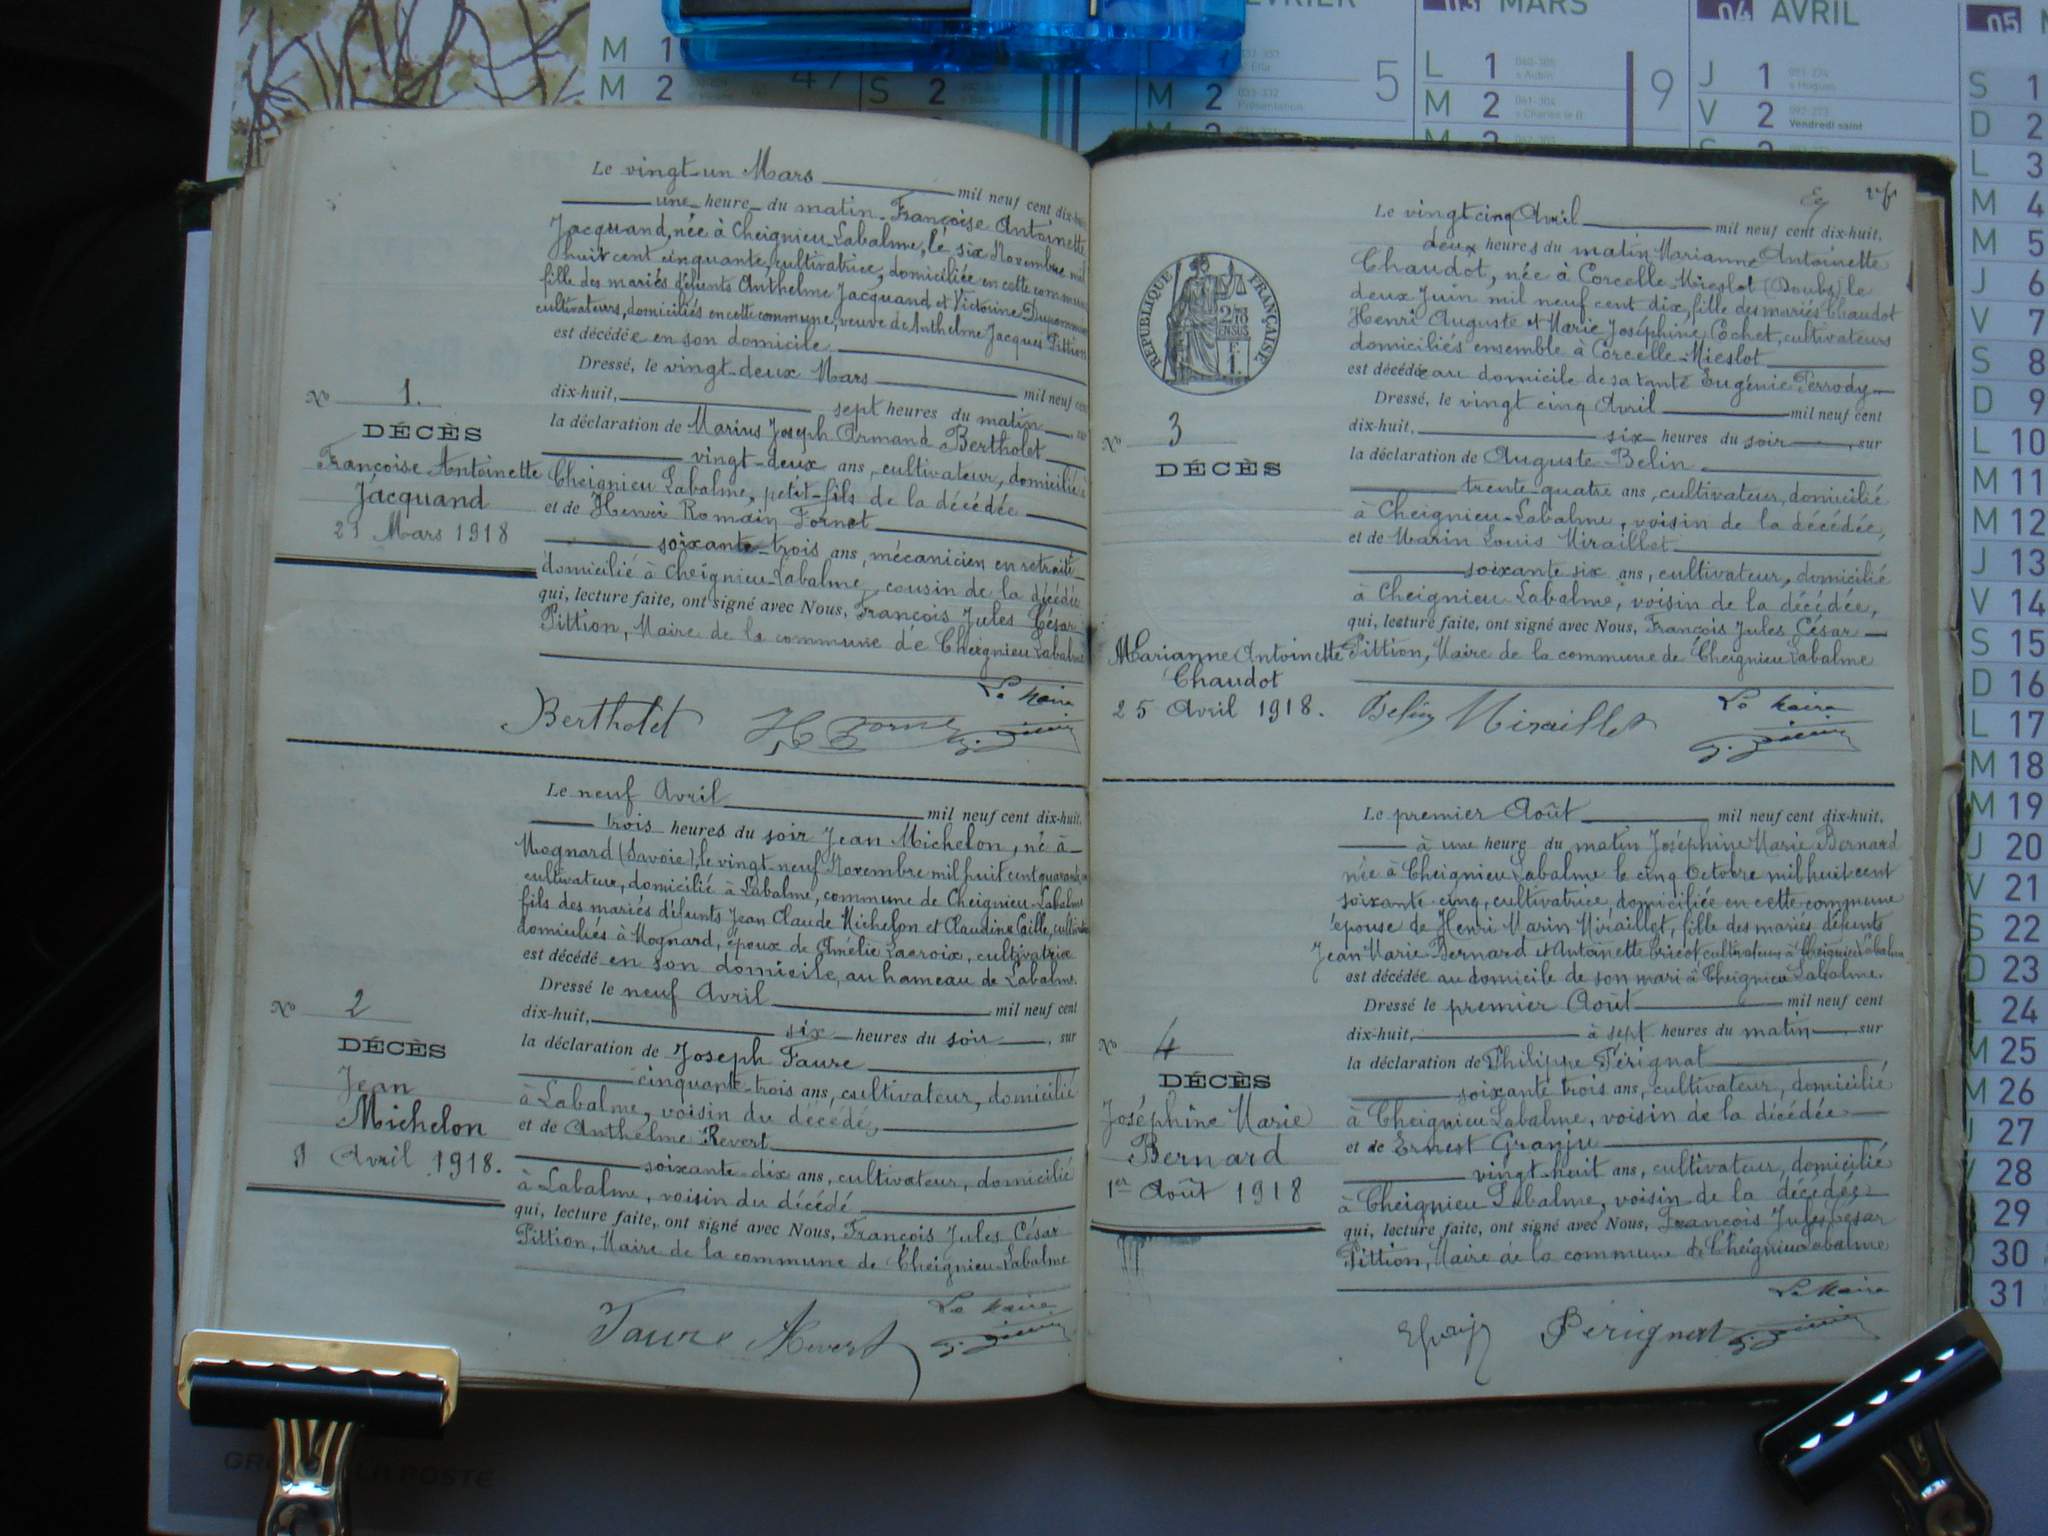 VRIER
03 MARS
04 AVRIL
05
M 1
M 2
47
S 2
M 2
5
L 1
M 2
9
J 1
V 2 Vendredi saint
S 1
D 2
L 3
M 4
M 5
J 6
V 7
S 8
D 9
L 10
M 11
M 12
J 13
V 14
S 15
D 16
L 17
M 18
M 19
J 20
V 21
S 22
D 23
L 24
M 25
M 26
J 27
V 28
29
30
31
Le vingt-un Mars mil neuf cent dix-huit
une heure du matin Françoise Antoinette
Jacquand, née à Cheignieu Labalme, le six Novembre mil
huit cent cinquante, cultivatrice, domiciliée en cette commune
fille des mariés défunts Anthelme Jacquand et Victorine
cultivateurs, domiciliés en cette commune, veuve de Anthelme Jacques Pittion
est décédée en son domicile.
Dressé, le vingt-deux Mars mil neuf cent
dix-huit, sept heures du matin, sur
la déclaration de Marius Joseph Armand Bertholet
vingt-deux ans, cultivateur, domicilié à
Cheignieu Labalme, petit-fils de la décédée
et de Henri Romain Fornet
soixante-trois ans, mécanicien en retraite
domicilié à Cheignieu-Labalme, cousin de la décédée
qui, lecture faite, ont signé avec Nous, François Jules César
Pittion, Maire de la commune de Cheignieu Labalme
No 1.
DÉCÈS
Françoise Antoinette
Jacquand
21 Mars 1918
Bertholet
Le Maire
Le neuf Avril mil neuf cent dix-huit.
trois heures du soir Jean Michelon, né à
Mognard (Savoie), le vingt-neuf Novembre mil huit cent
cultivateur, domicilié à Labalme, commune de Cheignieu-Labalme
fils des mariés défunts Jean Claude Michelon et Claudine Caille,
domiciliés à Mognard, époux de Amélie Lacroix, cultivatrice
est décédé en son domicile, au hameau de Labalme.
Dressé le neuf Avril mil neuf cent
dix-huit, six heures du soir, sur
la déclaration de Joseph Faure
cinquante-trois ans, cultivateur, domicilié
à Labalme, voisin du décédé,
et de Anthelme Revert
soixante-dix ans, cultivateur, domicilié
à Labalme, voisin du décédé
qui, lecture faite, ont signé avec Nous, François Jules César
Pittion, Maire de la commune de Cheignieu-Labalme
No 2
DÉCÈS
Jean
Michelon
9 Avril 1918.
Faure Revert
Le Maire
Le vingt cinq Avril mil neuf cent dix-huit.
deux heures du matin Marianne Antoinette
Chaudot, née à Corcelle-Mieslot (Doubs) le
deux Juin mil neuf cent dix, fille des mariés Chaudot
Henri Auguste et Marie Joséphine Cochet, cultivateurs
domiciliés ensemble à Corcelle-Mieslot
est décédée au domicile de sa tante Eugénie Perrody
Dressé, le vingt cinq Avril mil neuf cent
dix-huit, six heures du soir, sur
la déclaration de Auguste Belin
trente-quatre ans, cultivateur, domicilié
à Cheignieu-Labalme, voisin de la décédée,
et de Marin Louis Miraillet
soixante six ans, cultivateur, domicilié
à Cheignieu Labalme, voisin de la décédée,
qui, lecture faite, ont signé avec Nous, François Jules César
Pittion, Maire de la commune de Cheignieu Labalme
RÉPUBLIQUE FRANÇAISE
No 3
DÉCÈS
Marianne Antoinette
Chaudot
25 Avril 1918.
Belin Miraillet
Le Maire
Le premier Août mil neuf cent dix-huit.
à une heure du matin Joséphine Marie Bernard
née à Cheignieu Labalme le cinq Octobre mil huit cent
soixante cinq, cultivatrice, domiciliée en cette commune
épouse de Henri Marin Miraillet, fille des mariés défunts
Jean Marie Bernard et Antoinette Bricot cultivateurs à Cheignieu Labalme
est décédée au domicile de son mari à Cheignieu Labalme.
Dressé le premier Août mil neuf cent
dix-huit, à sept heures du matin, sur
la déclaration de Philippe Pérignat
soixante trois ans, cultivateur, domicilié
à Cheignieu Labalme, voisin de la décédée
et de Ernest Granju
vingt-huit ans, cultivateur, domicilié
à Cheignieu Labalme, voisin de la décédée
qui, lecture faite, ont signé avec Nous, François Jules César
Pittion, Maire de la commune de Cheignieu Labalme
No 4
DÉCÈS
Joséphine Marie
Bernard
1er Août 1918
Pérignat
Le Maire
LA POSTE